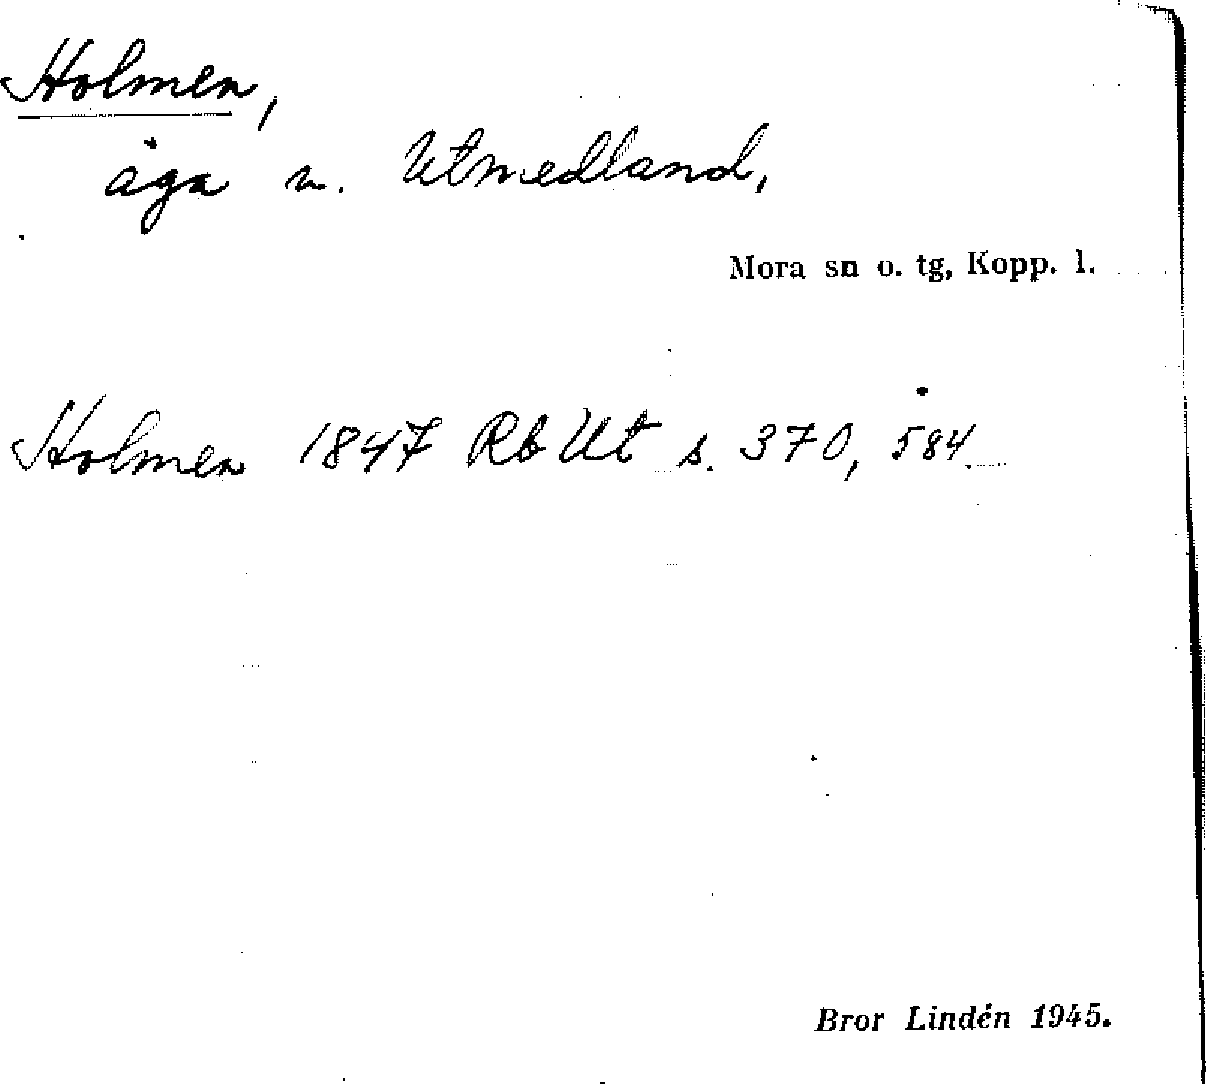 Holmen,
åga n. Utmedland,
Mora sn o. tg, Kopp. l.
Holmen 1847 Rb Ut s. 370, 584.
Bror Lindén 1945.